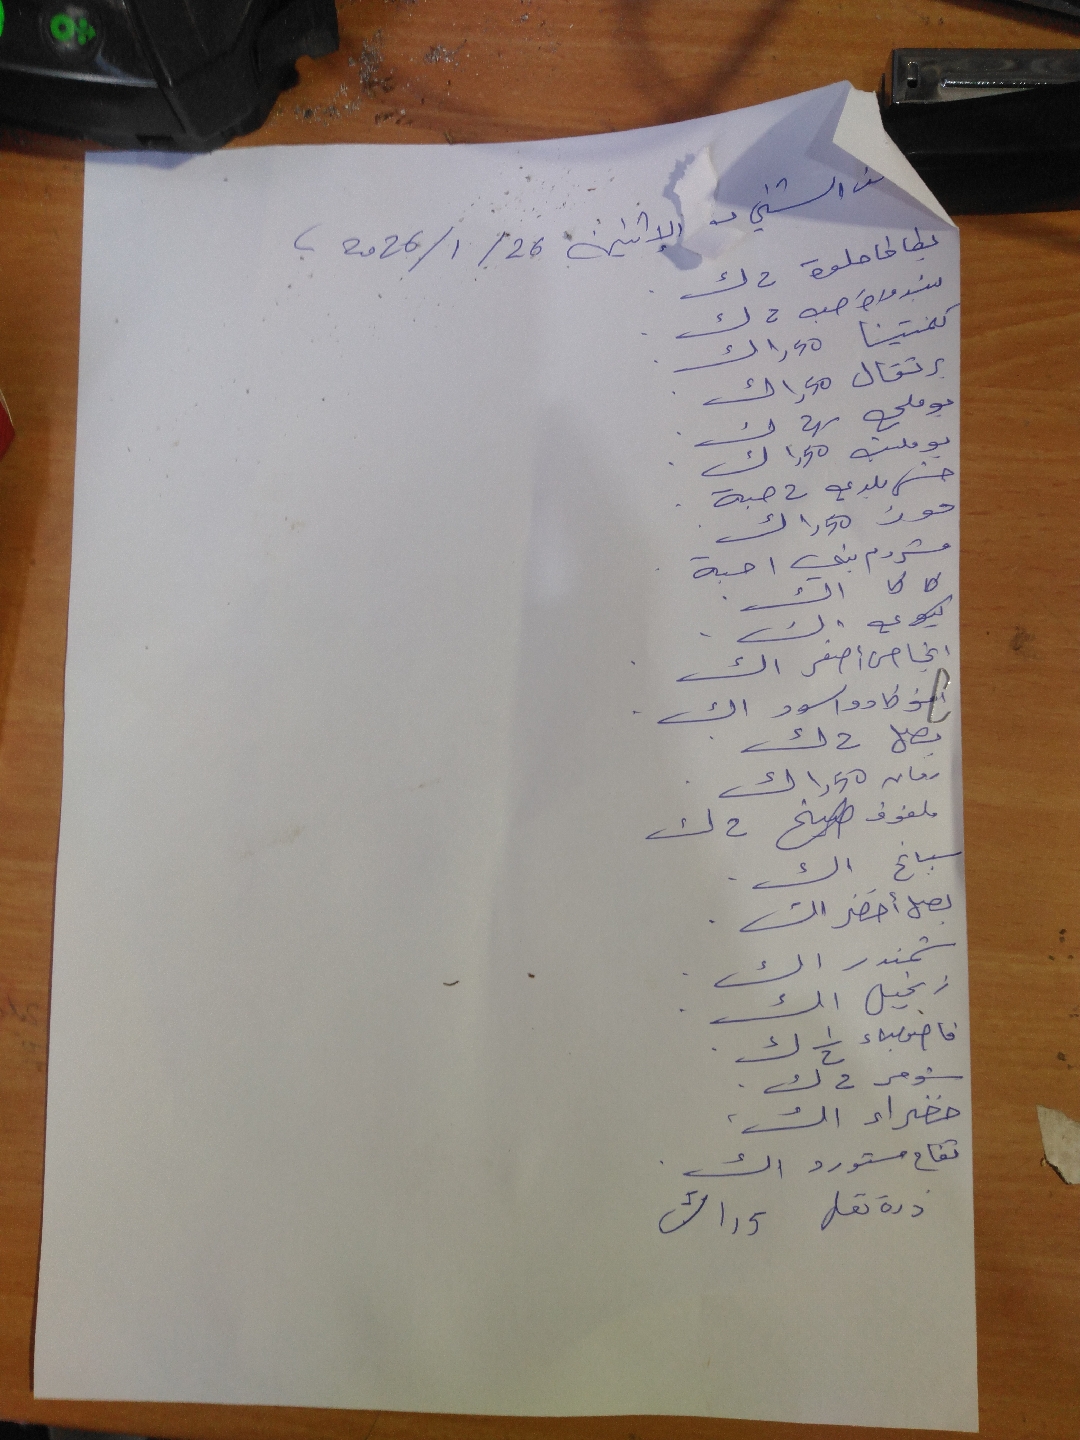 الاثنين 26/1/2026
بطاطا حلوة 2 ك
بندورة حب 2 ك
كلمنتينا 1,50 ك
برتقال 1,50 ك
بوملي 2 ك
بوملت 1,50 ك
خس بلدي 2 حبة
موز 1,50 ك
مشروم بني 1 حبة
كاكا 1 ك
كيوي 1 ك
انجاص أصفر 1 ك
افوكادو اسود 1 ك
بصل 2 ك
رمان 1,50 ك
ملفوف 2 ك
سبانخ 1 ك
بصل أخضر 1 ك
شمندر 1 ك
زنجبيل 1 ك
فاصولياء 1/2 ك
شومر 2 ك
خضراء 1 ك
تفاح مستورد 1 ك
ذرة 1,5 ك